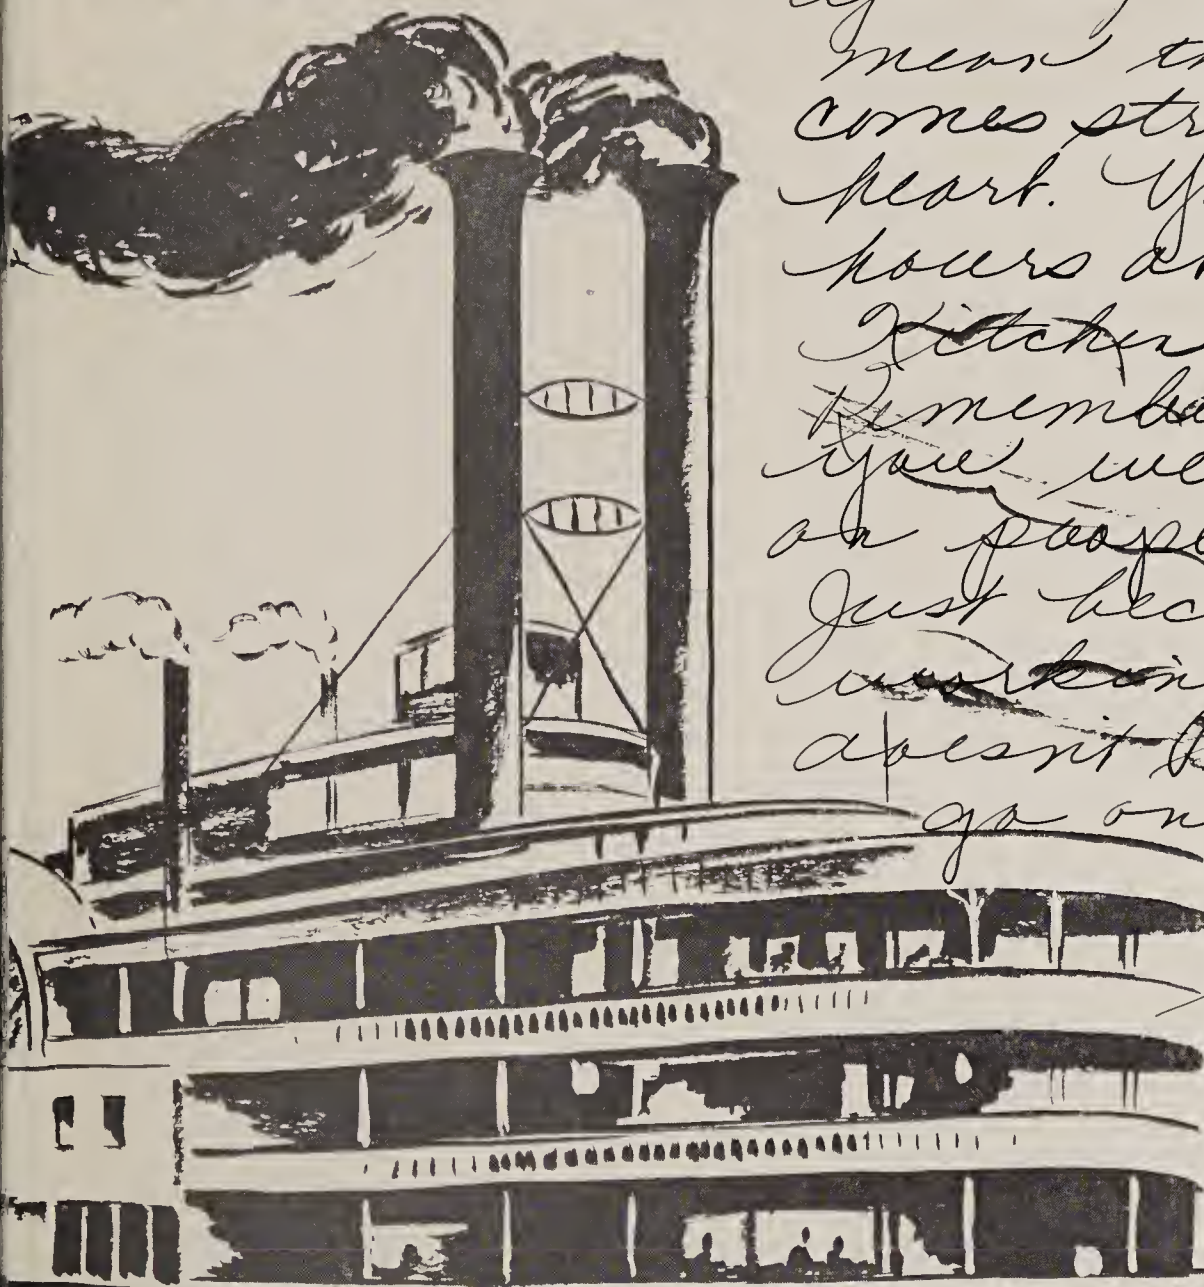 mean th
comes str
heart. Y
hours an
Kitchen
Remembe
you we
on paope
Just bec
workin
doesnt
go on